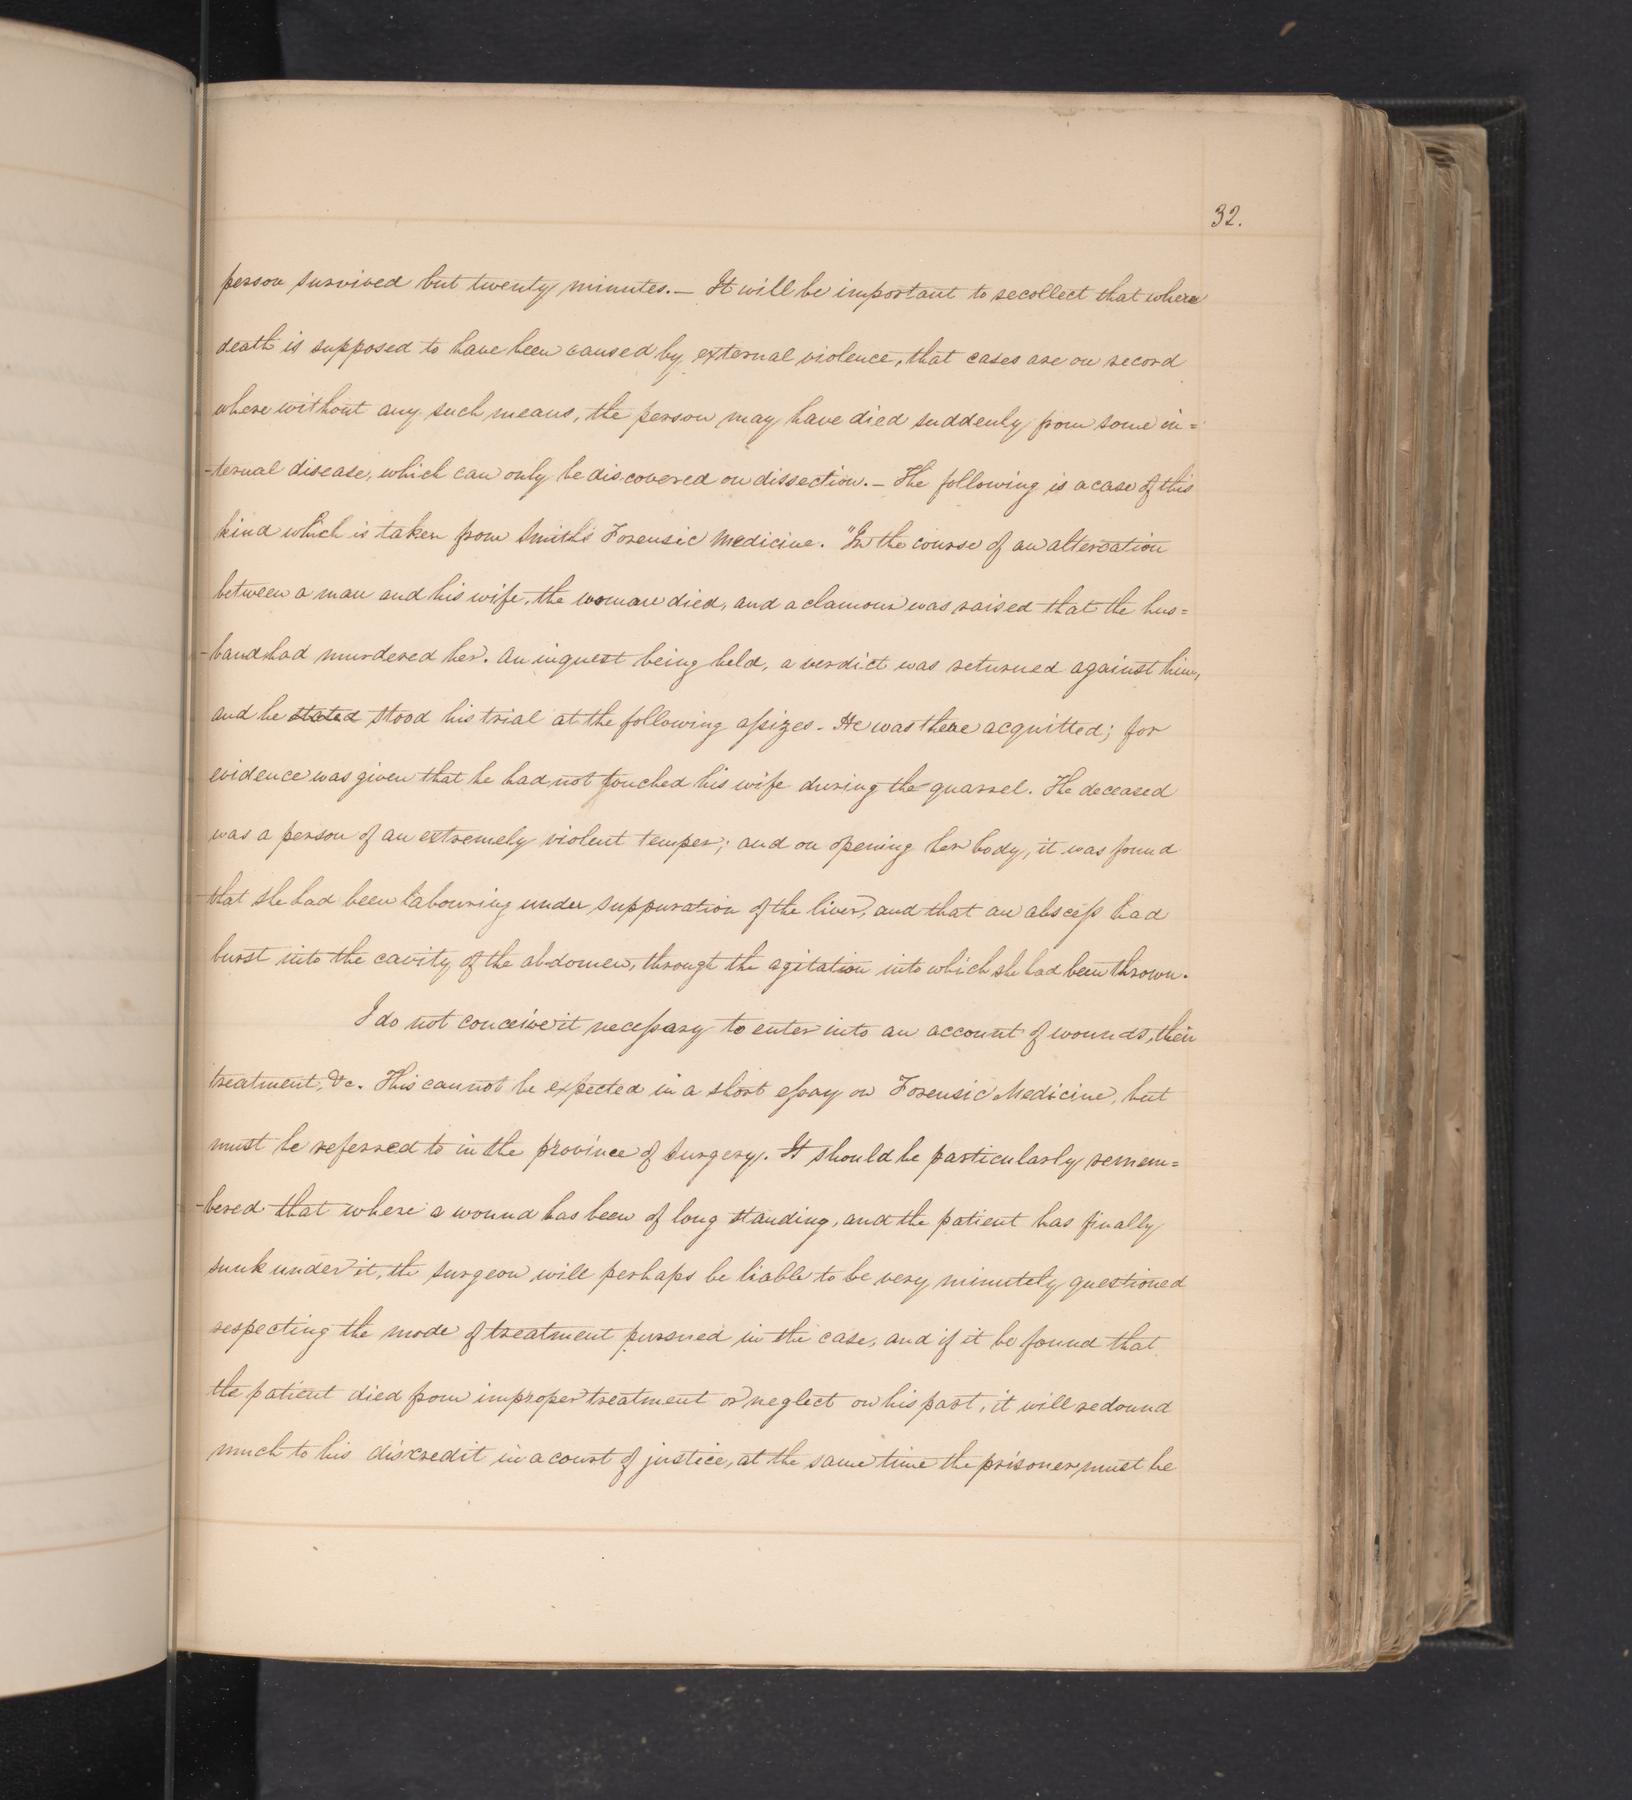 32.
person survived but twenty minutes.— It will be important to recollect that where
death is supposed to have been caused by external violence, that cases are on record
where without any such means, the person may have died suddenly from some in=
-ternal disease, which can only be discovered on dissection.— The following is a case of this
kind which is taken from Smith's Forensic Medicine. "In the course of an altercation
between a man and his wife, the woman died, and a clamour was raised that the hus=
-band had murdered her. An inquest being held, a verdict was returned against him,
and he stated stood his trial at the following assizes. He was there acquitted; for
evidence was given that he had not touched his wife during the quarrel. The deceased
was a person of an extremely violent temper; and on opening her body, it was found
that she had been labouring under suppuration of the liver, and that an abscess had
burst into the cavity of the abdomen, through the agitation into which she had been thrown.
I do not conceive it necessary to enter into an account of wounds, their
treatment, &c. This cannot be expected in a short essay on Forensic Medicine, but
must be referred to in the province of Surgery. It should be particularly remem=
-bered that where a wound has been of long standing, and the patient has finally
sunk under it, the surgeon will perhaps be liable to be very minutely questioned
respecting the mode of treatment pursued in the case, and if it be found that
the patient died from improper treatment or neglect on his part, it will redound
much to his discredit in a court of justice, at the same time the prisoner must be